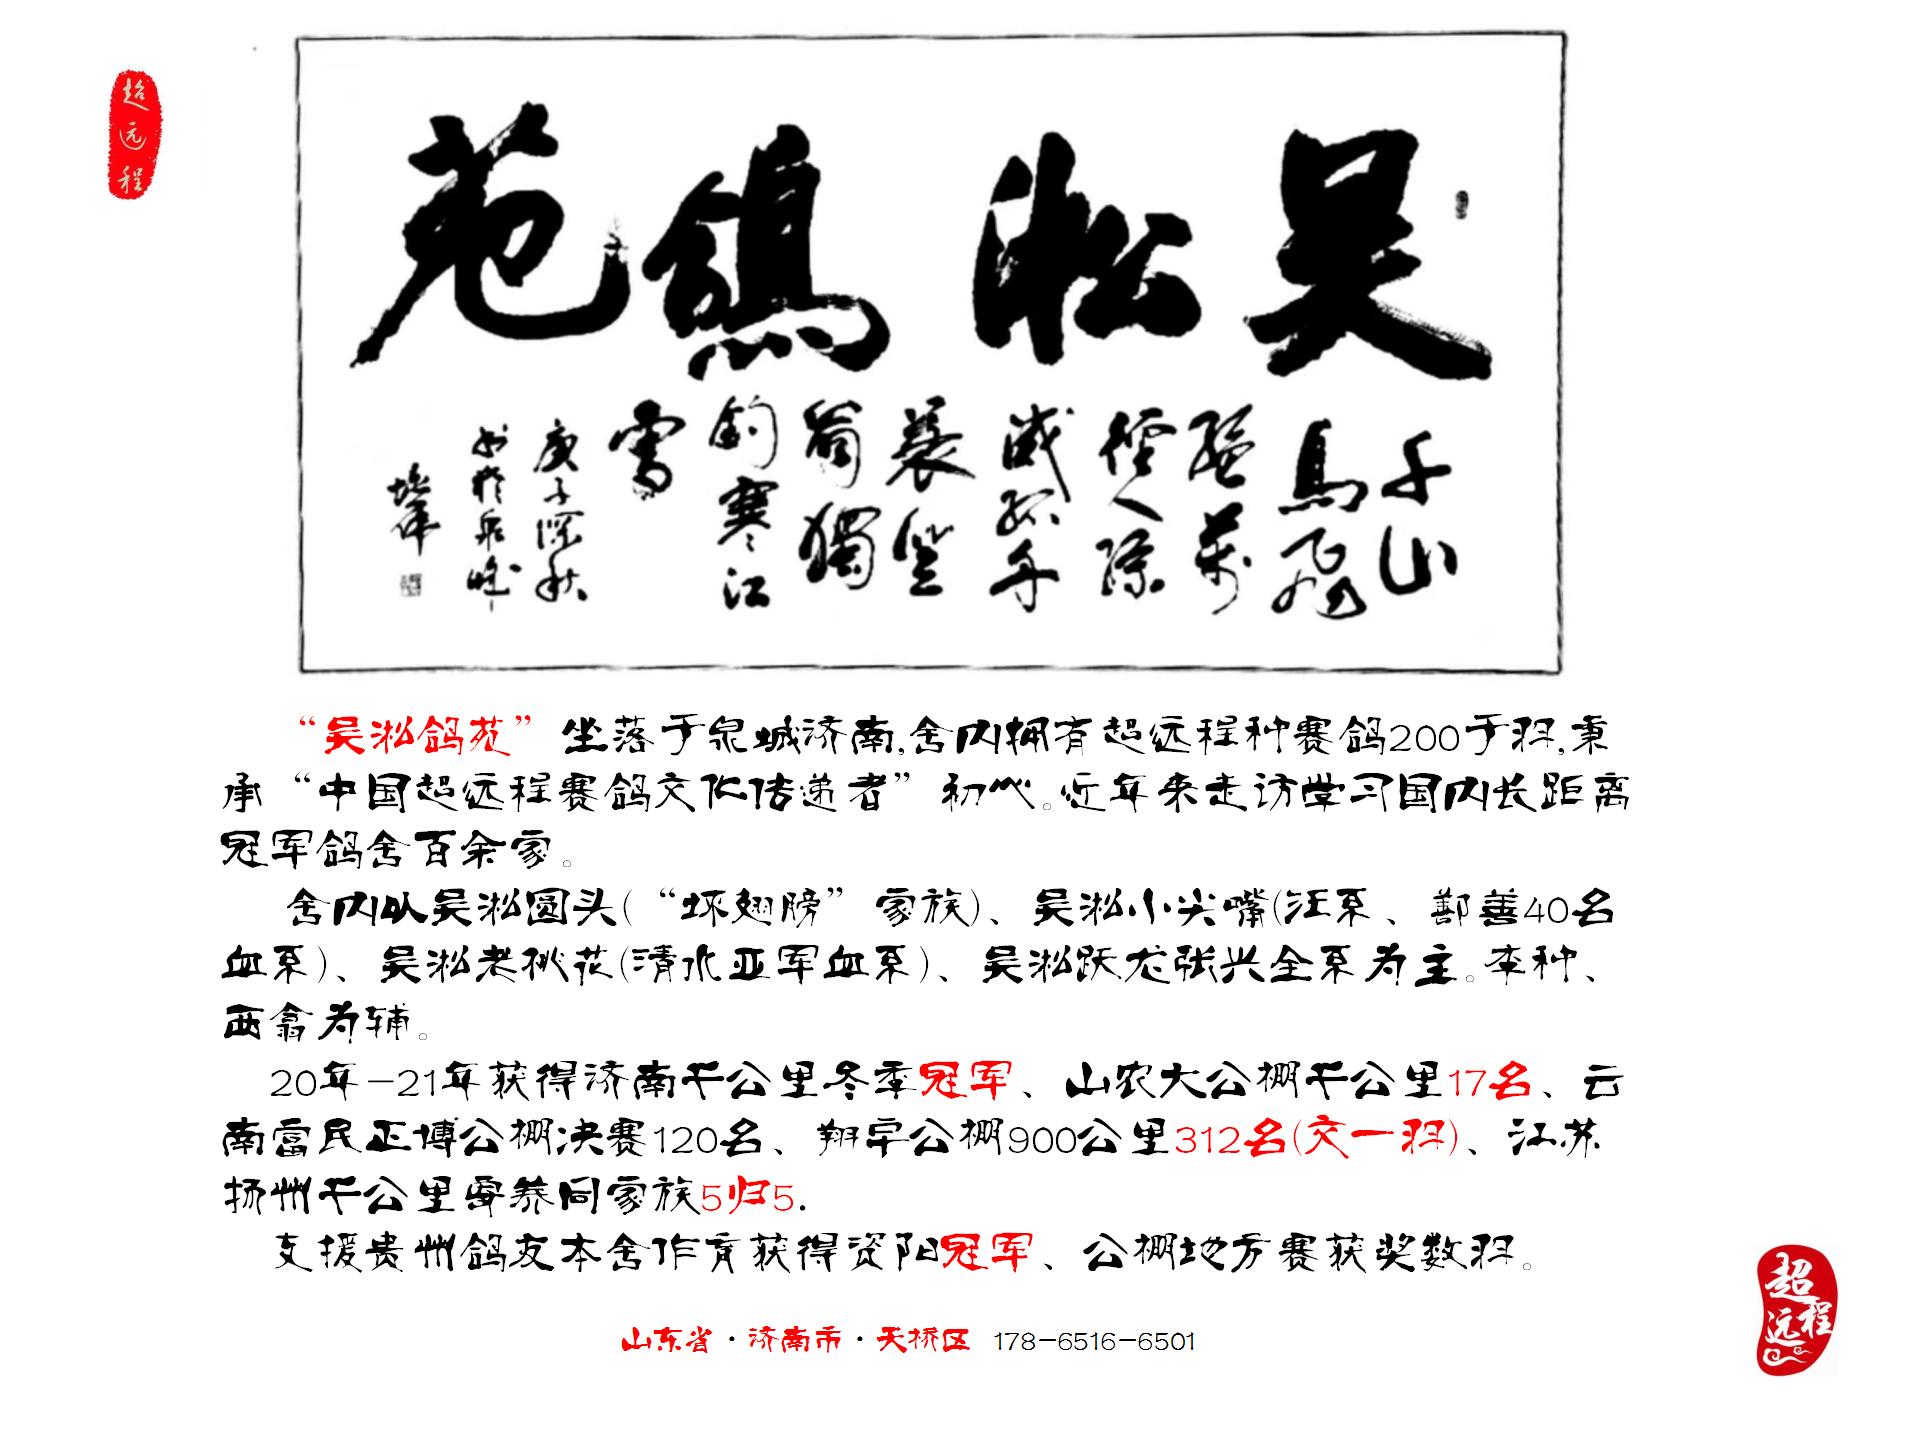 超远程
吴淞鸽苑
千山
鳥飛
絕萬
徑人
滅孤舟
蓑笠
翁獨
釣寒江
雪
庚子深秋
“吴淞鸽苑”坐落于泉城济南,舍内拥有超远程种赛鸽200于羽,秉
承“中国超远程赛鸽文化传递者”初心。近年来走访学习国内长距离
冠军鸽舍百余家。
舍内以吴淞圆头(“坏翅膀”家族)、吴淞小尖嘴(汪系、鄯善40名
血系)、吴淞老桃花(清水亚军血系)、吴淞跃龙张兴全系为主。李种、
西翕为辅。
20年-21年获得济南千公里冬季冠军、山农大公棚千公里17名、云
南富民正博公棚决赛120名、翔宇公棚900公里312名(交一羽)、江苏
扬州千公里委养同家族5归5.
支援贵州鸽友本舍作育获得资阳冠军、公棚地方赛获奖数羽。
山东省·济南市·天桥区 178-6516-6501
超远程